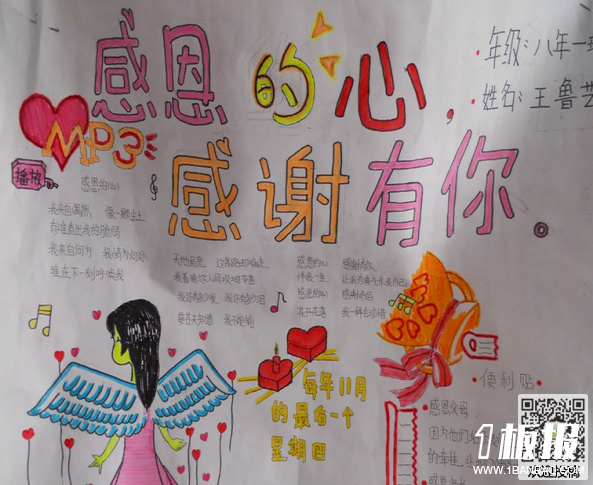 感恩的心，
感谢有你。
年级：八年一班
姓名：王鲁艺
MP3
播放
感恩的心
我来自偶然 像一颗尘土
有谁看出我的脆弱
我来自何方 我情归何处
谁在下一刻呼唤我
天地虽宽 这条路却难走
我看遍这人间坎坷辛苦
我还有多少爱 我还有多少泪
要苍天知道 我不认输
感恩的心 感谢有你
伴我一生 让我有勇气作我自己
感恩的心 感谢命运
花开花落 我一样会珍惜
每年11月
的最后一个
星期四
便利贴
感恩父母
因为他们
的牵挂，
1板报
WWW.1BANBAO.COM
欢迎投稿